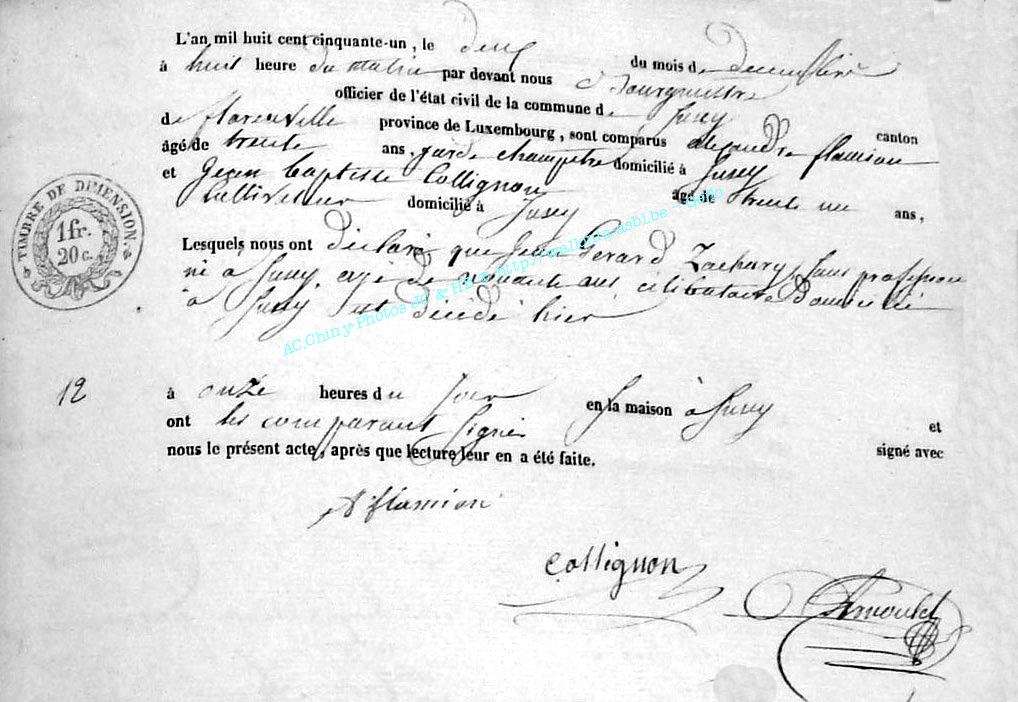 L'an mil huit cent cinquante-un, le deux du mois de decembre
à huit heure du matin par devant nous Bourgmestre
officier de l'état civil de la commune de Suxy canton
de florenville province de Luxembourg, sont comparus alexandre flamion
âgé de trente ans, garde champetre domicilié à Suxy
et Jean baptiste Collignon âgé de trente un ans,
Cultivateur domicilié à Suxy
Lesquels nous ont déclaré que Jean Gerard Zachary, Sans profession
né à Suxy, agé de nonante ans célibataire Domicilié
à Suxy est décédé hier
12
à onze heures du Soir en la maison à Suxy et
ont les comparant Signés signé avec
nous le présent acte, après que lecture leur en a été faite.
A flamion
Collignon
TIMBRE DE DIMENSION.
1 fr.
20 c.